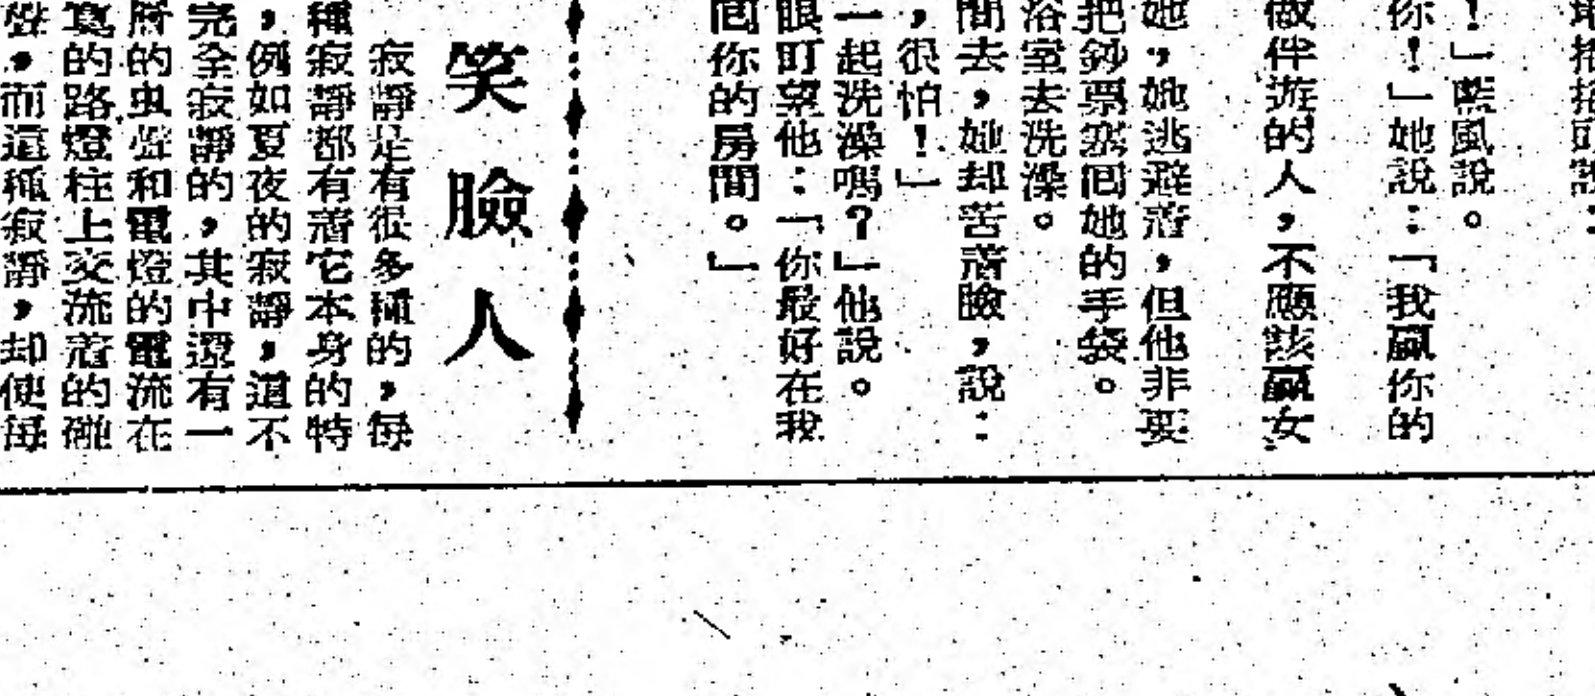 ！」藍風說。
你！」她說：「我贏你的
做伴遊的人，不應該贏女
她，她逃避着，但他非要
把鈔票塞回她的手袋。
浴室去洗澡。
間去，她却苦着臉，說：
，很怕！」
一起洗澡嗎？」他說。
眼盯望他：「你最好在我
回你的房間。」
笑臉人
寂靜是有很多種的，每
種寂靜都有着它本身的特
，例如夏夜的寂靜，道不
完全寂靜的，其中還有一
的虫聲和電燈的電流在
的路燈柱上交流着的碰
聲，而這種寂靜，却使每